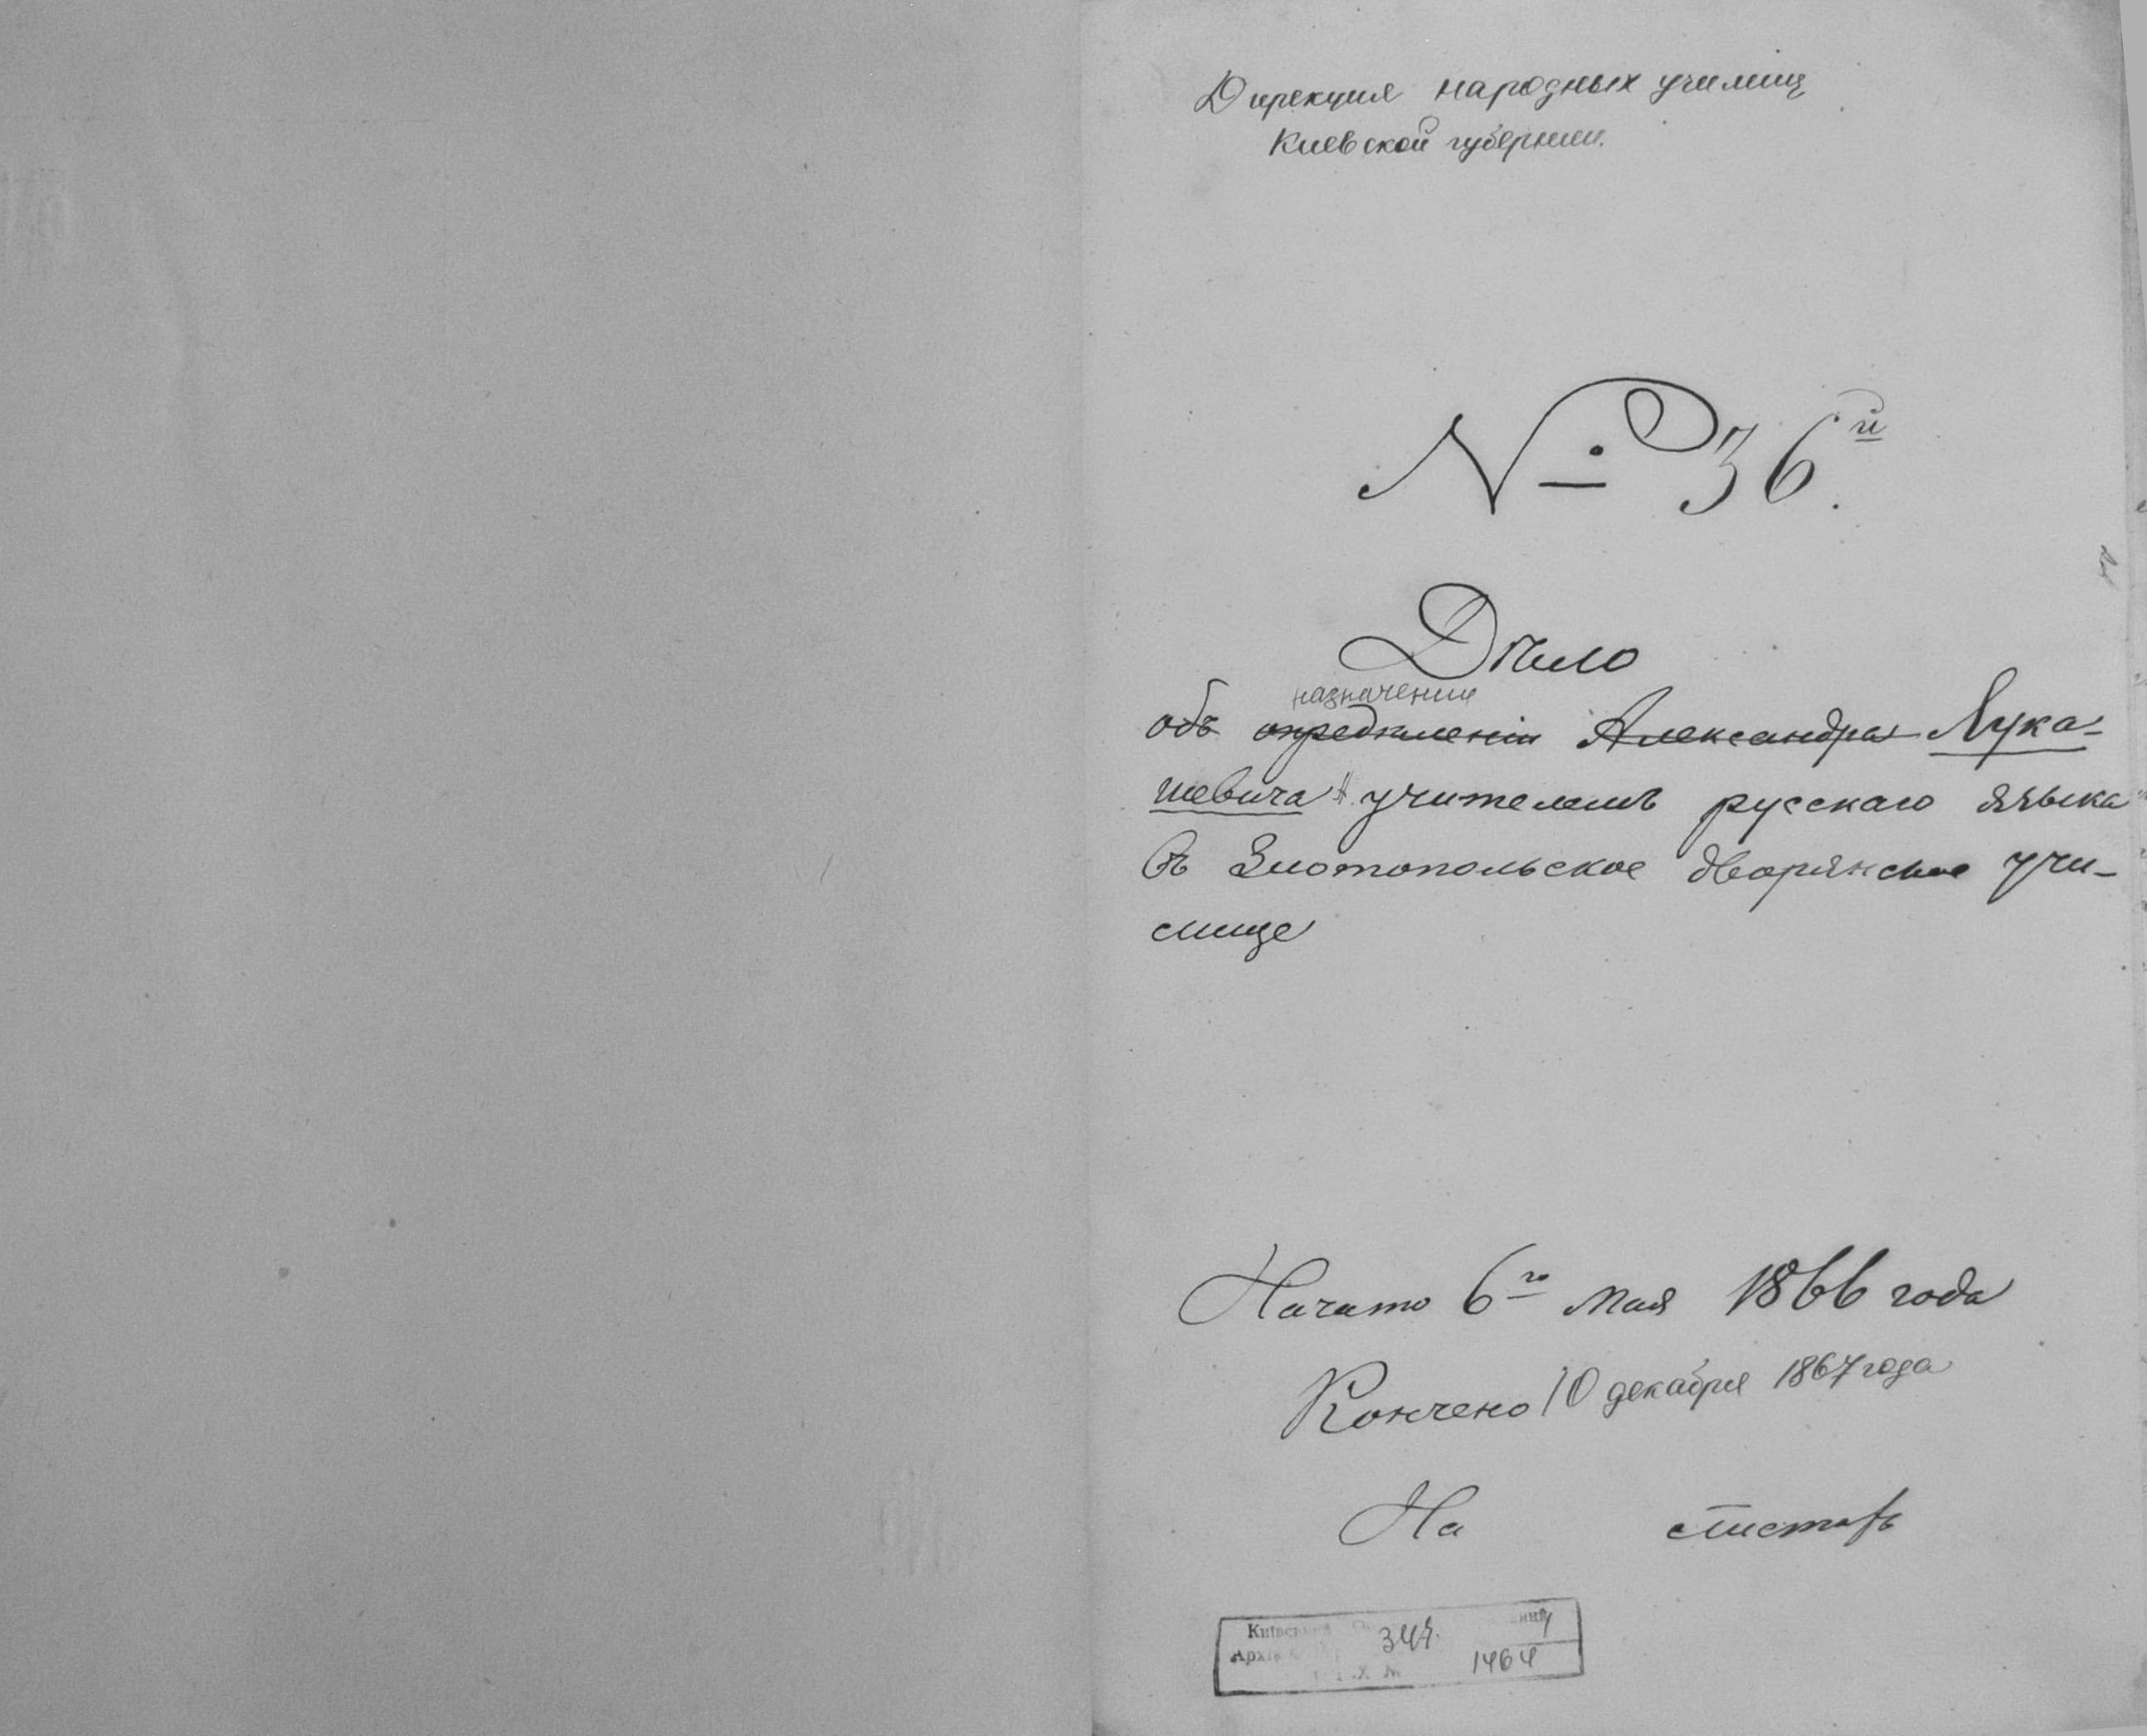 Дирекция народных училищ
Киевской губернии.
№ 36й.
Дѣло
назначении
объ опредѣленіи Александра Лука-
шевича учителемъ русскаго языка
въ Златопольское дворянское учи-
лище
Начато 6го мая 1866 года
Кончено 10 декабря 1867 года
На листахъ
1464